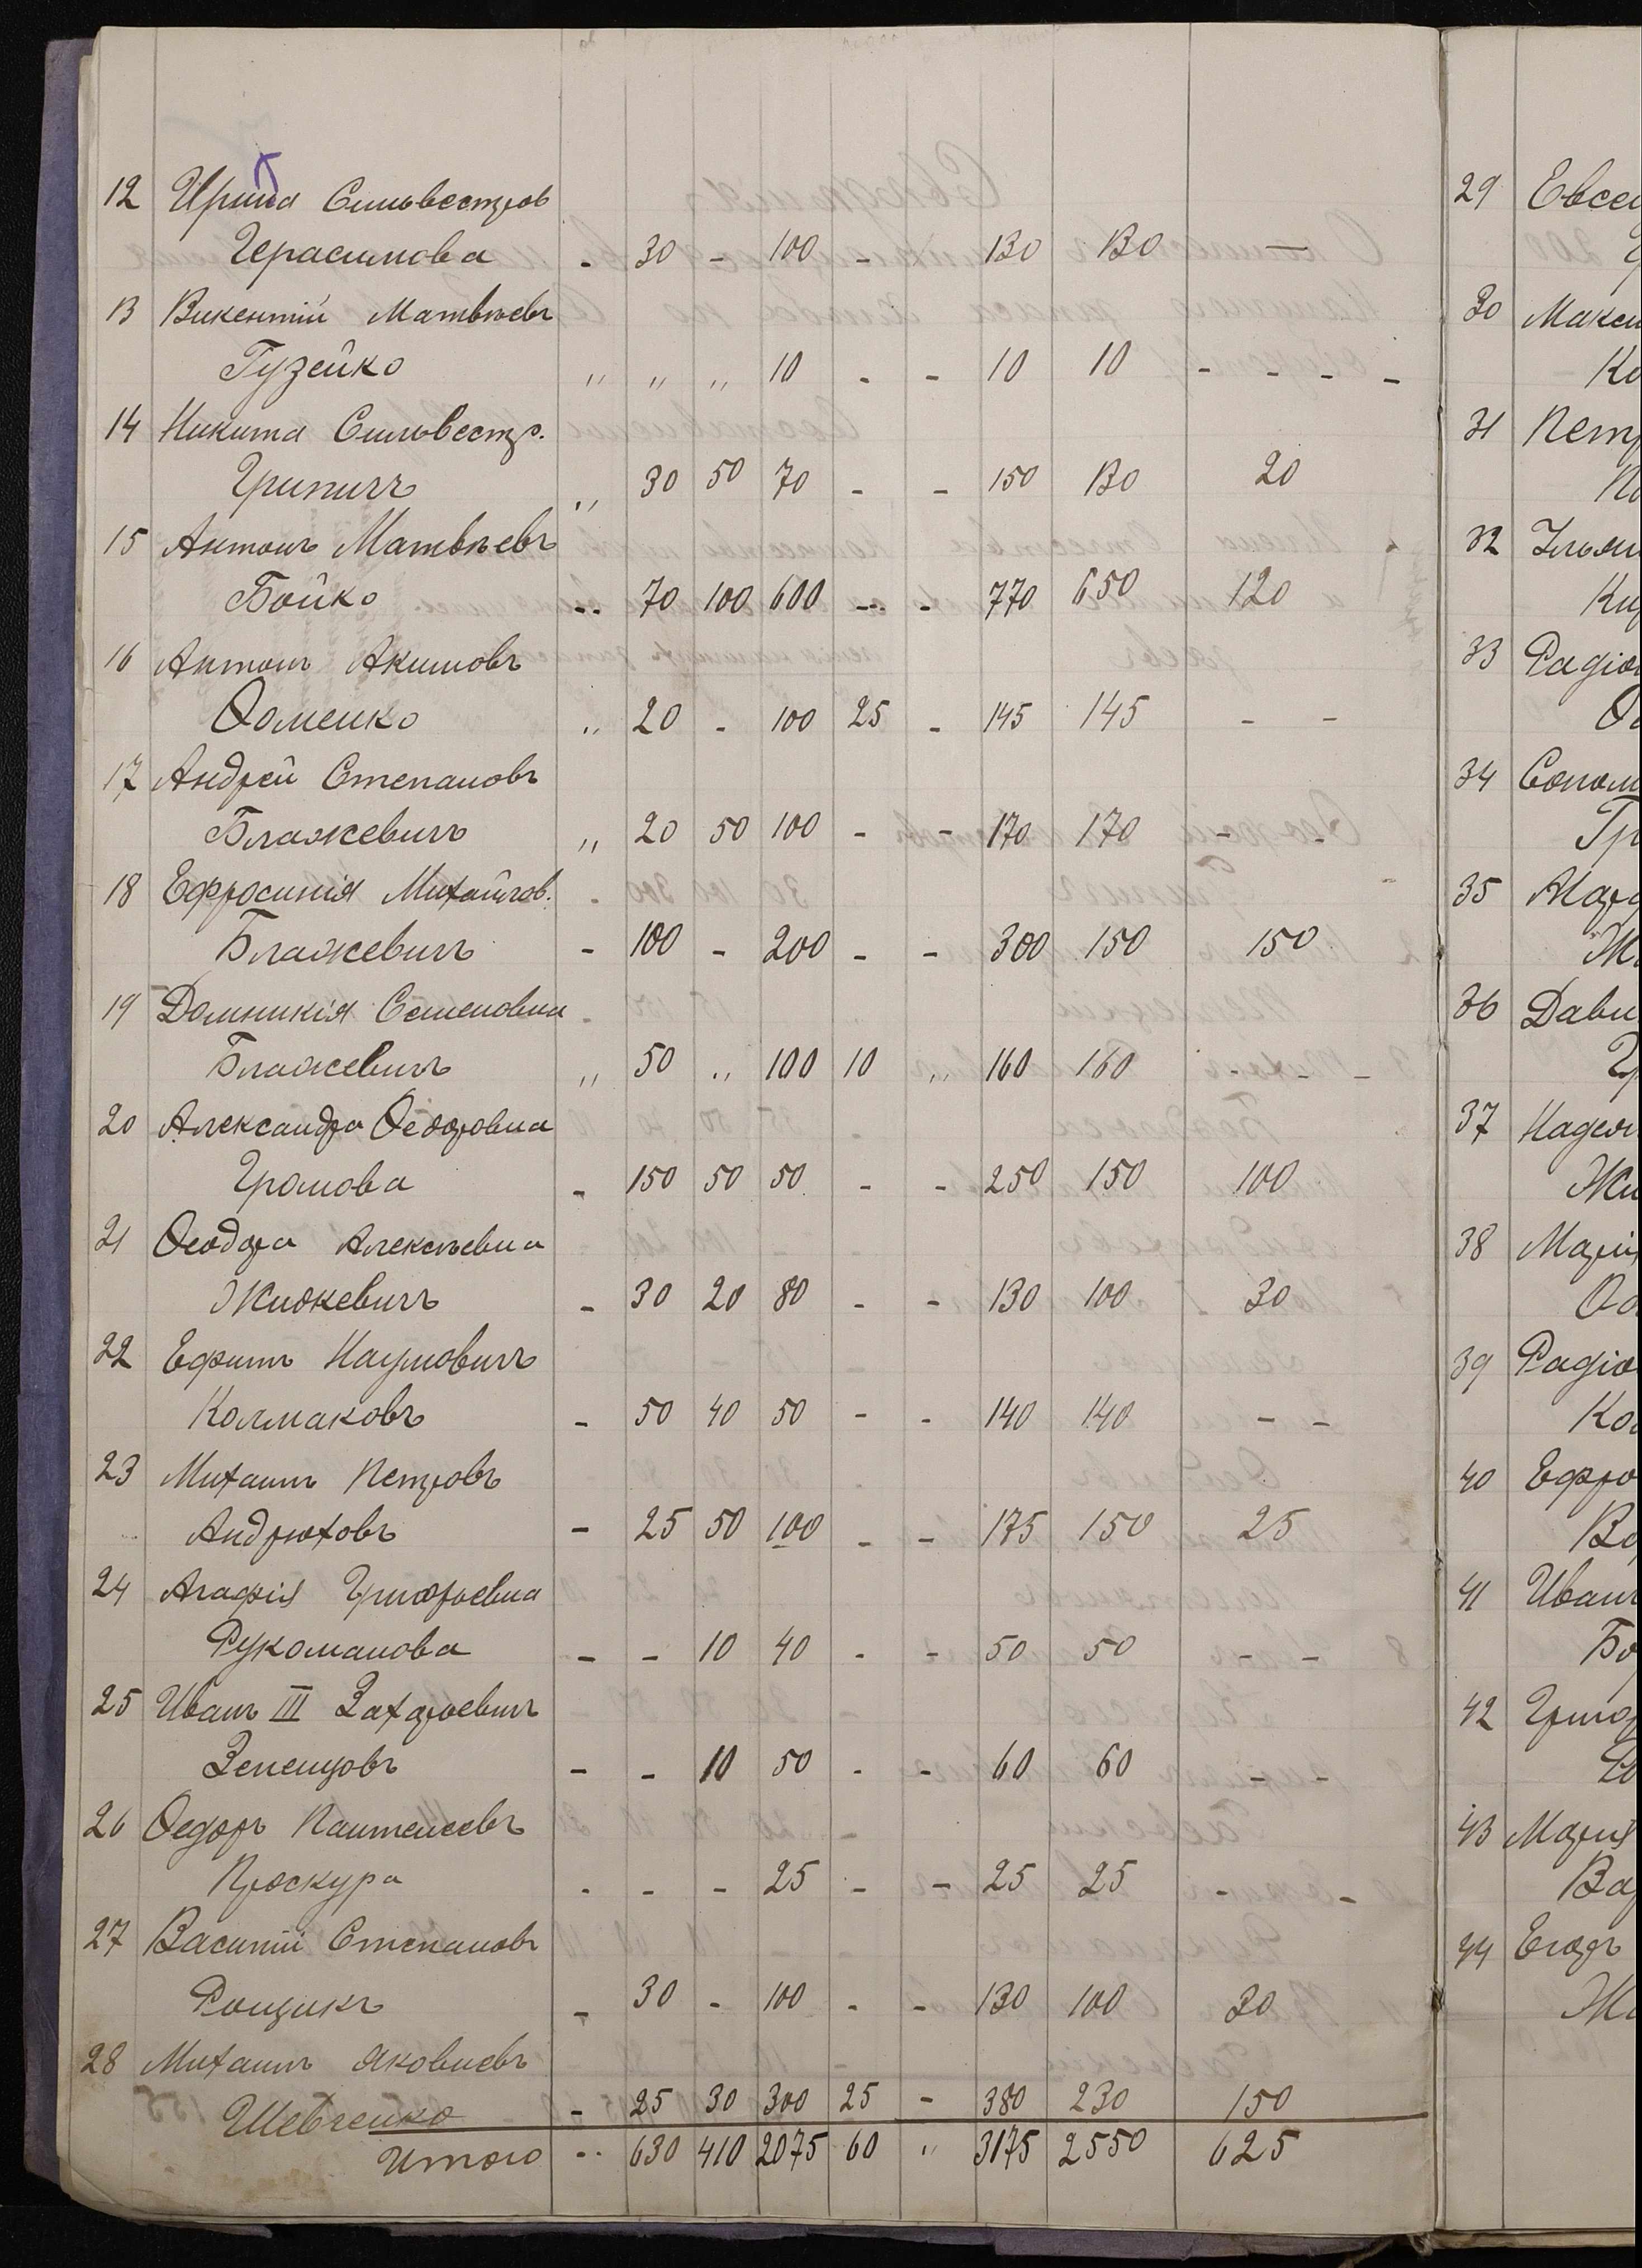 12 Ирина Сильвестров
Герасимова - 30 - 100 - 130 130 —
13 Викентій Матвѣевъ
Гузейко " " " 10 - - 10 10 - - - -
14 Никита Сильвестр.
Грипичъ " 30 50 70 - - 150 130 20
15 Антонъ Матвѣевъ
Бойко -- 70 100 600 --- - 770 650 120
16 Антонъ Акимовъ
Ѳоменко " 20 - 100 25 - 145 145 - -
17 Андрей Степановъ
Блажевичъ " 20 50 100 - - 170 170 - -
18 Ефросинія Михайлов. -
Блажевичъ - 100 - 200 - - 300 150 150
19 Домникія Семеновна -
Блажевичъ " 50 " 100 10 " 160 160 - - -
20 Александра Ѳедоровна
Громова - 150 50 50 - - 250 150 100
21 Ѳеодора Алексѣевна
Жидкевичъ - 30 20 80 - - 130 100 30
22 Ефимъ Наумовичъ
Колмаковъ - 50 40 50 - - 140 140 - -
23 Михаилъ Петровъ
Андрюховъ - 25 50 100 - - 175 150 25
24 Агафія Григорьевна
Рукоманова - - 10 40 - - 50 50 - -
25 Иванъ III Захарьевичъ
Зеленцовъ - - 10 50 - - 60 60 - -
26 Ѳедоръ Пантелеевъ
Проскура - - - 25 - - 25 25 - -
27 Василій Степановъ
Рощикъ - 30 - 100 - - 130 100 30
28 Михаилъ Яковлевъ
Шевченко - 25 30 300 25 - 380 230 150
Итого -- 630 410 2075 60 " 3175 2550 625
29 Евсе
30 Макси
Ко
31 Петр
32 Ульян
Ки
33 Радіо
34 Солом
Гр
35 Мар
36 Дави
37 Надеж
Жи
38 Марі
39 Радіо
Ко
40 Ефро
Во
41 Иванъ
Бо
42 Григо
43 Марія
Ва
44 Егоръ